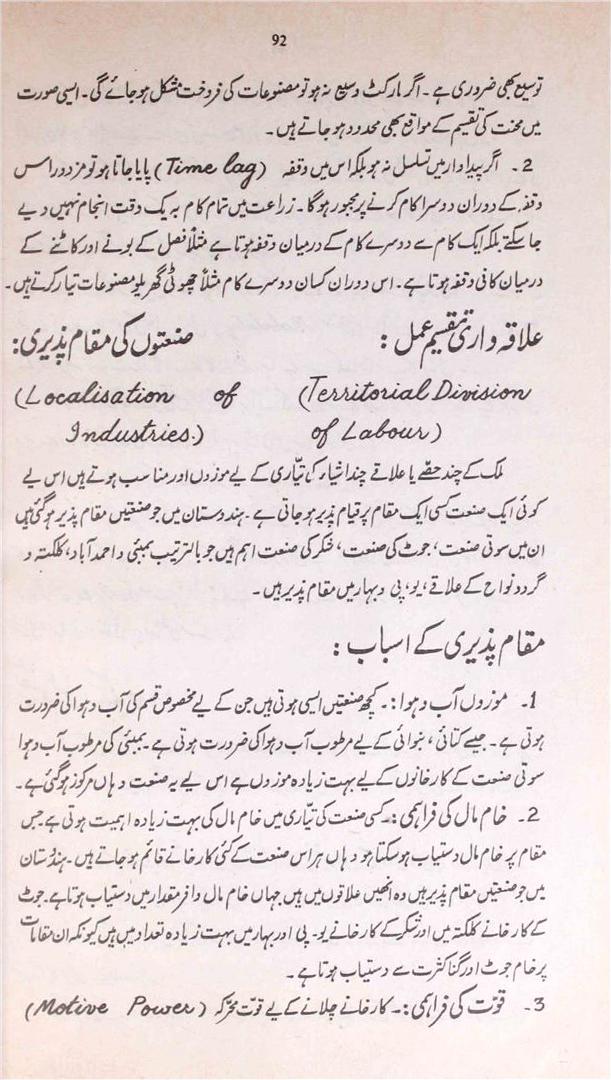 92
توسیع بھی ضروری ہے ۔ اگر مارکٹ وسیع نہ ہو تو مصنوعات کی فروخت مشکل ہو جائے گی ۔ ایسی صورت
میں محنت کی تقسیم کے مواقع بھی محدود ہو جاتے ہیں ۔
2 ۔ اگر پیداوار میں تسلسل نہ ہو بلکہ اس میں وقفہ (Time lag) پایا جاتا ہو تو مزدور اس
وقفہ کے دوران دوسرا کام کرنے پر مجبور ہوگا ۔ زراعت میں تمام کام بہ یک وقت انجام نہیں دیے
جا سکتے بلکہ ایک کام سے دوسرے کام کے درمیان وقفہ ہوتا ہے مثلاً فصل کے بونے اور کاٹنے کے
درمیان کافی وقفہ ہوتا ہے ۔ اس دوران کسان دوسرے کام مثلاً چھوٹی گھریلو مصنوعات تیار کرتے ہیں ۔
علاقہ واری تقسیم عمل : صنعتوں کی مقام پذیری :
(Localisation of (Territorial Division
Industries.) of Labour)
ملک کے چند حصّے یا علاقے چند اشیاء کی تیّاری کے لیے موزوں اور مناسب ہوتے ہیں اس لیے
کوئی ایک صنعت کسی ایک مقام پر قیام پذیر ہو جاتی ہے ۔ ہندوستان میں جو صنعتیں مقام پذیر ہو گئی ہیں
ان میں سوتی صنعت ، جوٹ کی صنعت ، شکر کی صنعت اہم ہیں جو بالترتیب بمبئی و احمد آباد ، کلکتہ و
گرد و نواح کے علاقے ، یو ، پی و بہار میں مقام پذیر ہیں ۔
مقام پذیری کے اسباب :
1 ۔ موزوں آب و ہوا :۔ کچھ صنعتیں ایسی ہوتی ہیں جن کے لیے مخصوص قسم کی آب و ہوا کی ضرورت
ہوتی ہے ۔ جیسے کتائی ، بنوائی کے لیے مرطوب آب و ہوا کی ضرورت ہوتی ہے ۔ بمبئی کی مرطوب آب و ہوا
سوتی صنعت کے کارخانوں کے لیے بہت زیادہ موزوں ہے اس لیے یہ صنعت وہاں مرکوز ہو گئی ہے ۔
2 ۔ خام مال کی فراہمی :۔ کسی صنعت کی تیّاری میں خام مال کی بہت زیادہ اہمیت ہوتی ہے جس
مقام پر خام مال دستیاب ہو سکتا ہو وہاں ہر اس صنعت کے کئی کارخانے قائم ہو جاتے ہیں ۔ ہندُستان
میں جو صنعتیں مقام پذیر ہیں وہ انھیں علاقوں میں ہیں جہاں خام مال وافر مقدار میں دستیاب ہوتا ہے ۔ جوٹ
کے کارخانے کلکتہ میں اور شکر کے کارخانے یو ۔ پی اور بہار میں بہت زیادہ تعداد میں ہیں کیونکہ ان مقامات
پر خام جوٹ اور گنا کثرت سے دستیاب ہوتا ہے ۔
3 ۔ قوّت کی فراہمی :۔ کارخانے چلانے کے لیے قوّت محرّکہ (Motive Power)